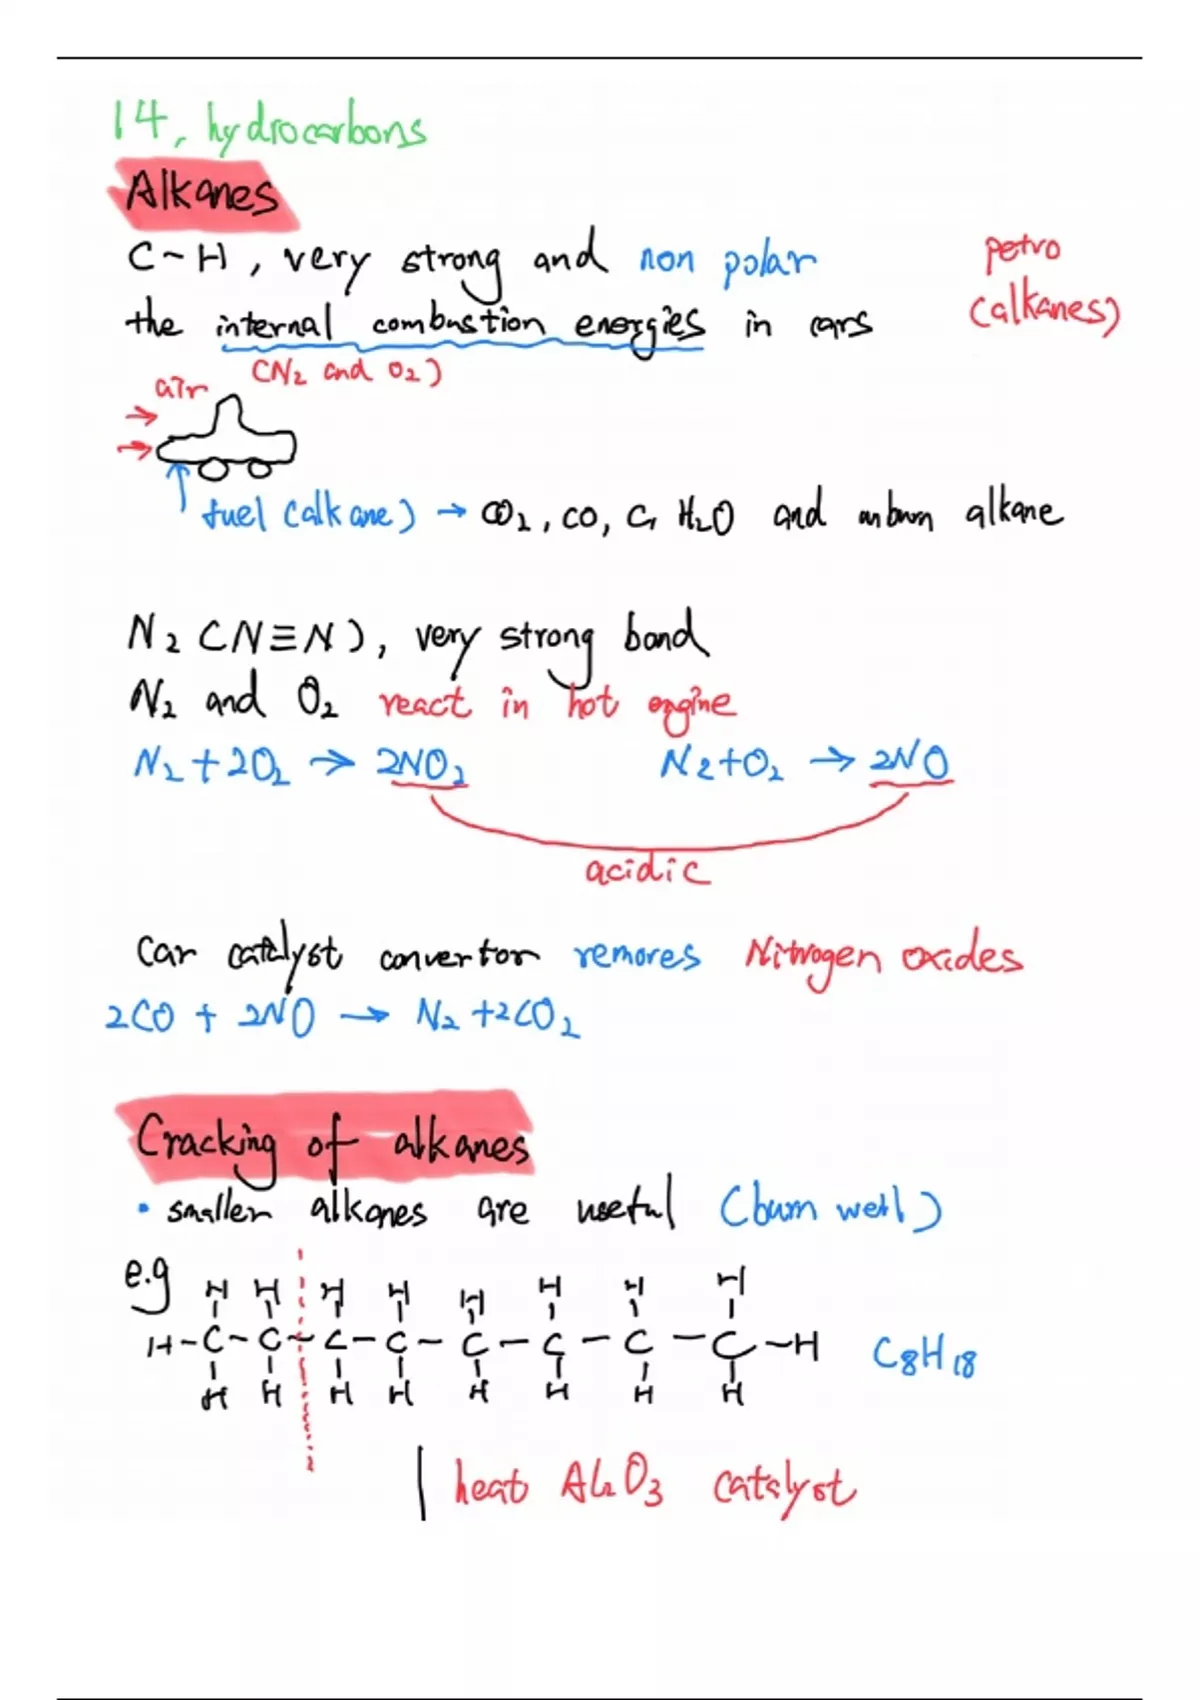 14, hydrocarbons
Alkanes
C-H, very strong and non polar
petro
(alkanes)
the internal combustion energies in cars
(N2 and O2)
air
fuel (alkane) → CO2, CO, C, H2O and unburn alkane
N2 (N≡N), very strong bond
N2 and O2 react in hot engine
N2+2O2 → 2NO2 N2+O2 → 2NO
acidic
Car catalyst convertor removes Nitrogen oxides
2CO + 2NO → N2 +2CO2
Cracking of alkanes
• smaller alkanes are useful (burn well)
e.g
H H H H H H H H
H-C-C-C-C-C-C-C-C-H C8H18
H H H H H H H H
heat Al2O3 catalyst